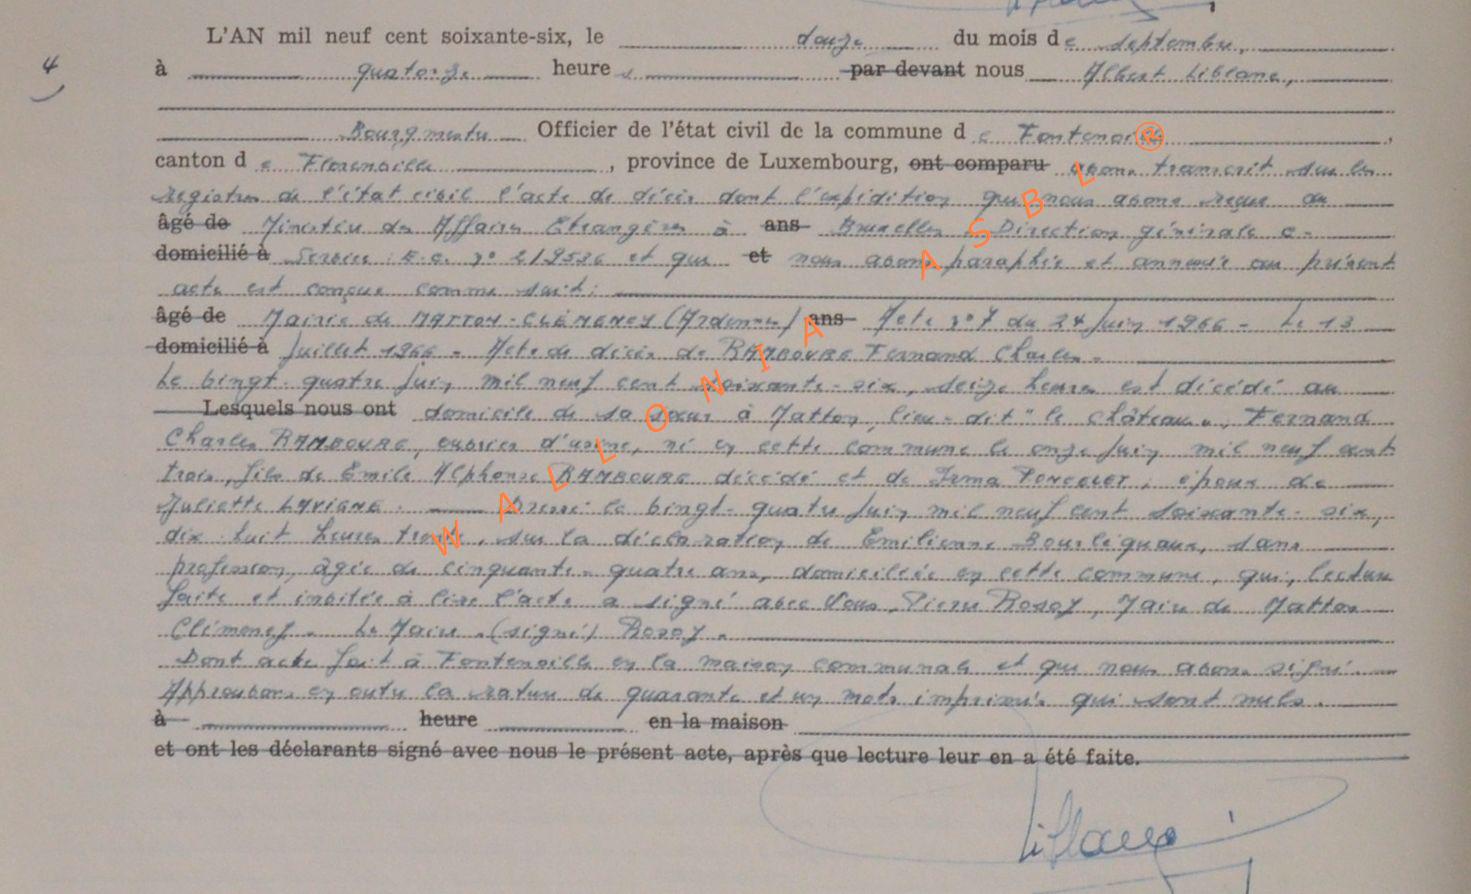 L'AN mil neuf cent soixante-six, le douze du mois de septembre,
4
à quatorze heures par devant nous Albert Liblanc,
Bourgmestre Officier de l'état civil de la commune de Fontenoille ®,
canton de Florenville, province de Luxembourg, ont comparu avons transcrit sur les
registres de l'état civil l'acte de décès dont l'expédition que nous avons reçue du
âgé de Ministère des Affaires Etrangères à ans Bruxelles Direction générale C.
domicilié à Service: E.C. n° 2/9536 et que et nous avons paraphée et annexée au présent
acte est conçue comme suit:
âgé de Mairie de MATTON-CLÉMENCY (Ardennes) ans Acte n° 7 du 24 Juin 1966 - Le 13
domicilié à Juillet 1966 - Acte de décès de RAMBOURG Fernand Charles.
Le vingt-quatre Juin mil neuf cent soixante-six, seize heures est décédé au
Lesquels nous ont domicile de sa sœur à Matton, lieu-dit "le château", Fernand
Charles RAMBOURG, ouvrier d'usine, né en cette commune le onze Juin mil neuf cent
trois, fils de Emile Alphonse RAMBOURG décédé et de Irma PONCELET, époux de
Juliette LAVIGNE. Dressé le vingt-quatre Juin mil neuf cent soixante-six,
dix-huit heures trente, sur la déclaration de Emilienne Bourleguaux, sans
profession, âgée de cinquante-quatre ans, domiciliée en cette commune, qui, lecture
faite et invitée à lire l'acte a signé avec Nous, Pierre Rosoy, Maire de Matton
Clémency. Le Maire. (signé) Rosoy.
Dont acte fait à Fontenoille en la maison communale et que nous avons signé.
Approuvons en outre la rature de quarante et un mots imprimés qui sont nuls.
à heure en la maison
et ont les déclarants signé avec nous le présent acte, après que lecture leur en a été faite.
Liblanc
WALLONIA ASBL